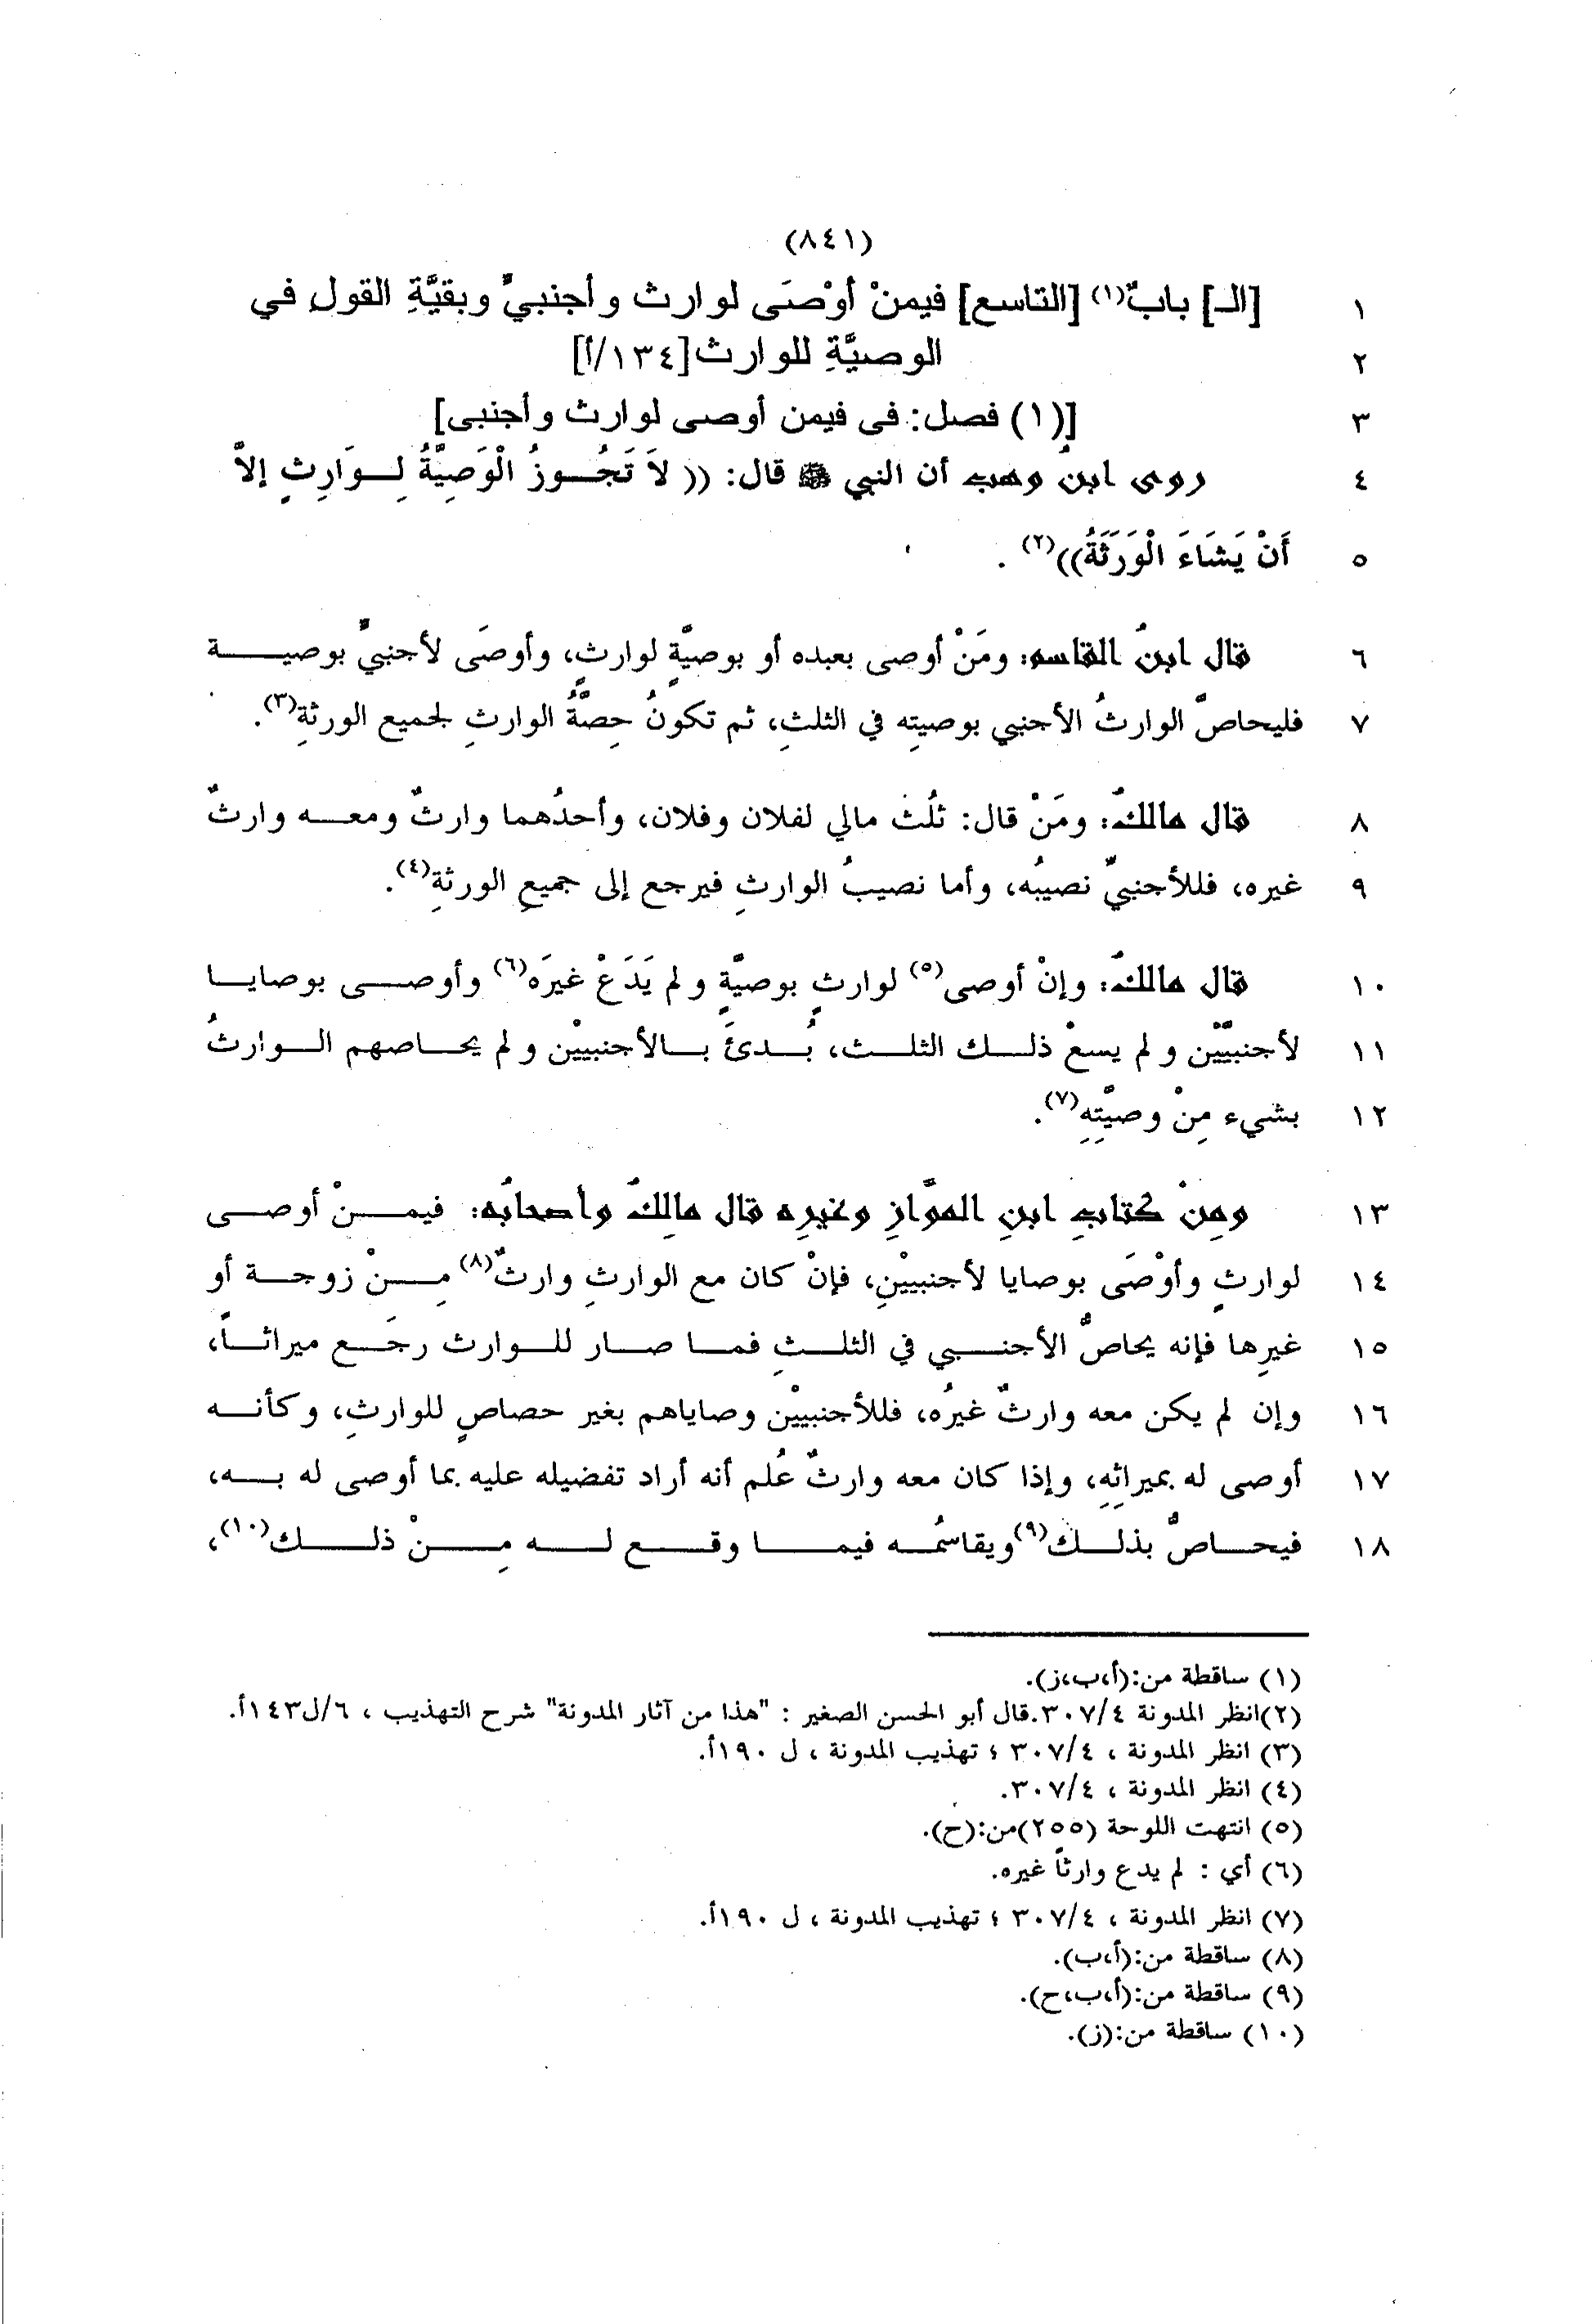 (٨٤١)
١ [الـ] بابٌ(١) [التاسع] فيمنْ أوْصَى لوارث وأجنبيٍّ وبقيَّةِ القولِ في
٢ الوصيَّةِ للوارث[١٣٤/أ]
٣ [(١) فصل: في فيمن أوصى لوارث وأجنبي]
٤ روى ابنُ وهب أن النبي ﷺ قال: (( لاَ تَجُوزُ الْوَصِيَّةُ لِوَارِثٍ إلاَّ
٥ أَنْ يَشَاءَ الْوَرَثَةُ))(٢) .
٦ قال ابنُ القاسم: ومَنْ أوصى بعبده أو بوصيَّةٍ لوارثٍ، وأوصَى لأجنبيٍّ بوصية
٧ فليحاصَّ الوارثُ الأجنبي بوصيتِه في الثلثِ، ثم تكونُ حِصَّةُ الوارثِ لجميع الورثةِ(٣).
٨ قال مالكٌ: ومَنْ قال: ثُلُث مالي لفلان وفلان، وأحدُهما وارثٌ ومعه وارثٌ
٩ غيره، فللأجنبيِّ نصيبُه، وأما نصيبُ الوارثِ فيرجع إلى جميعِ الورثةِ(٤).
١٠ قال مالكٌ: وإنْ أوصى(٥) لوارثٍ بوصيَّةٍ ولم يَدَعْ غيرَه(٦) وأوصى بوصايا
١١ لأجنبيِّيْن ولم يسعْ ذلك الثلث، بُدئَ بالأجنبييْن ولم يحاصهم الوارثُ
١٢ بشيء مِنْ وصيَّتِهِ(٧).
١٣ ومِنْ كتابِ ابنِ الموَّازِ وغيرِه قال مالِكٌ وأصحابُه: فيمنْ أوصى
١٤ لوارثٍ وأوْصَى بوصايا لأجنبييْنِ، فإنْ كان مع الوارثِ وارثٌ(٨) مِنْ زوجة أو
١٥ غيرِها فإنه يحاصُّ الأجنبي في الثلثِ فما صار للوارث رجَع ميراثاً،
١٦ وإن لم يكن معه وارثٌ غيرُه، فللأجنبييْن وصاياهم بغير حصاصٍ للوارثِ، وكأنه
١٧ أوصى له بميراثِهِ، وإذا كان معه وارثٌ عُلم أنه أراد تفضيله عليه بما أوصى له به،
١٨ فيحاصُّ بذلك(٩)ويقاسمُه فيما وقع له مِنْ ذلك(١٠)،
(١) ساقطة من:(أ،ب،ز).
(٢)انظر المدونة ٣٠٧/٤.قال أبو الحسن الصغير : "هذا من آثار المدونة" شرح التهذيب ، ٦/ل١٤٣أ.
(٣) انظر المدونة ، ٣٠٧/٤ ؛ تهذيب المدونة ، ل ١٩٠أ.
(٤) انظر المدونة ، ٣٠٧/٤.
(٥) انتهت اللوحة (٢٥٥)من:(ح).
(٦) أي : لم يدع وارثاً غيره.
(٧) انظر المدونة ، ٣٠٧/٤ ؛ تهذيب المدونة ، ل ١٩٠أ.
(٨) ساقطة من:(أ،ب).
(٩) ساقطة من:(أ،ب،ح).
(١٠) ساقطة من:(ز).